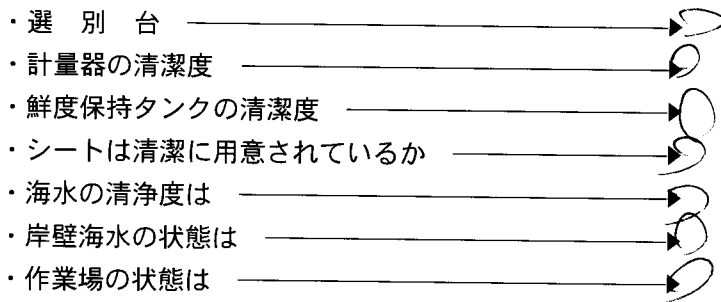 ・選　別　台
・計量器の清潔度
・鮮度保持タンクの清潔度
・シートは清潔に用意されているか
・海水の清浄度は
・岸壁海水の状態は
・作業場の状態は